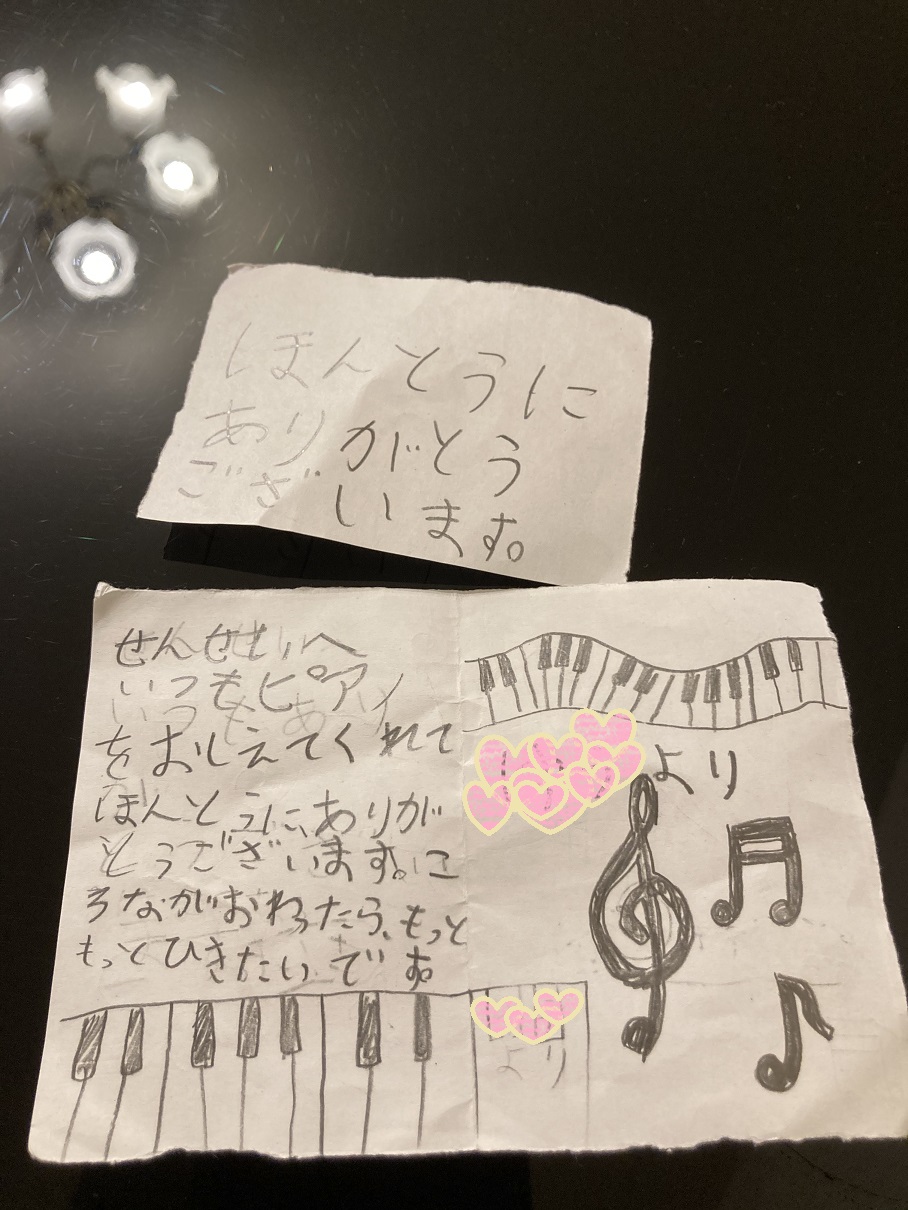 ほんとうに
ありがとう
ございます。
せんせいへ
いつもピアノ
をおしえてくれて
ほんとうに、ありが
とうございます。こ
ろながおわったら、もっと
もっとひきたいです。
より
より